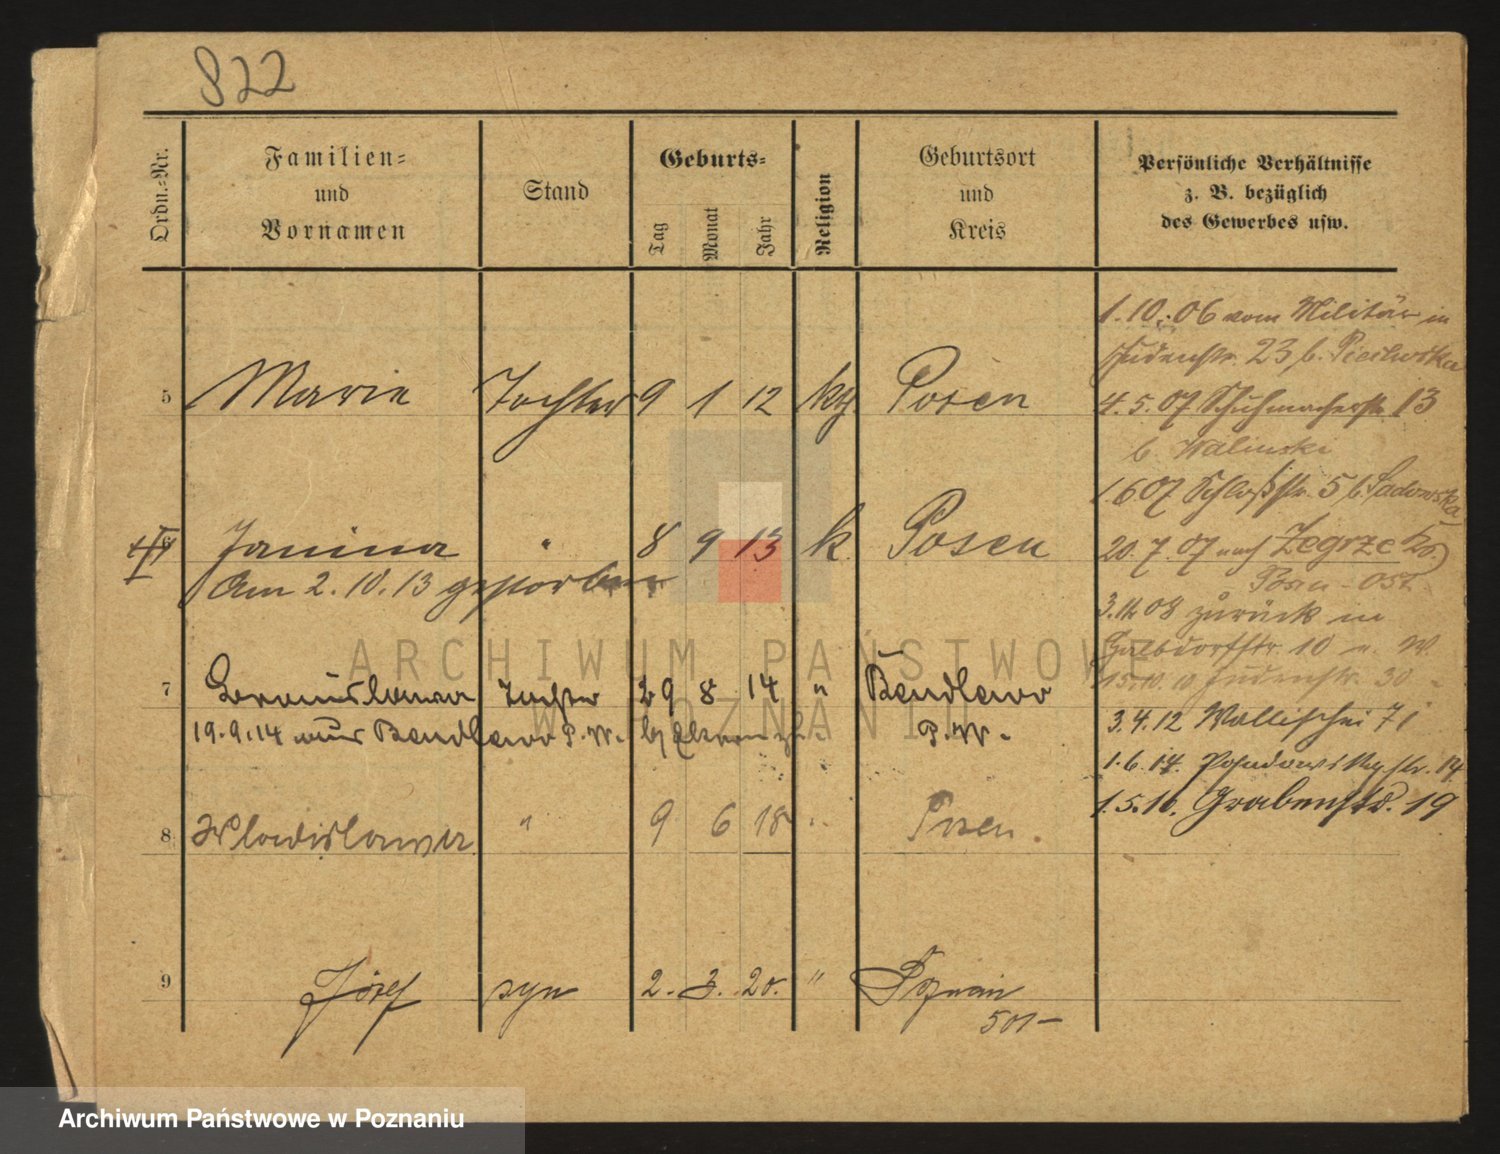 822
Ordn.-Nr.
Familien-
und
Vornamen
Stand
Geburts-
Tag
Monat
Jahr
Religion
Geburtsort
und
Kreis
Persönliche Verhältnisse
z. B. bezüglich
des Gewerbes usw.
5 Marie Tochter 9 1 12 kth. Posen
6 Janina " 8 9 13 k. Posen
Am 2.10.13 gestorben
7 Tochter 29 8 14 " Bendlewo
19.9.14 aus Bendlewo P.W. P.W.
8 Wladislawa " 9 6 18 " Posen.
9 Józef syn 2. 3. 20. " Poznań
501-
1.10.06 vom Militär in
Judenstr. 23 b.
4.5.07 Schuhmacherstr. 13
b. Walinski
1.6.07 Schloßstr. 5 b. Sadowska
20.7.07 nach Zegrze
Posen-Ost.
3.11.08 zurück in
10 u. W.
15.10.10 Judenstr. 30
3.4.12 Wallischei 71
1.6.14. 14
1.5.16. Grabenstr. 19
ARCHIWUM PAŃSTWOWE
W POZNANIU
Archiwum Państwowe w Poznaniu